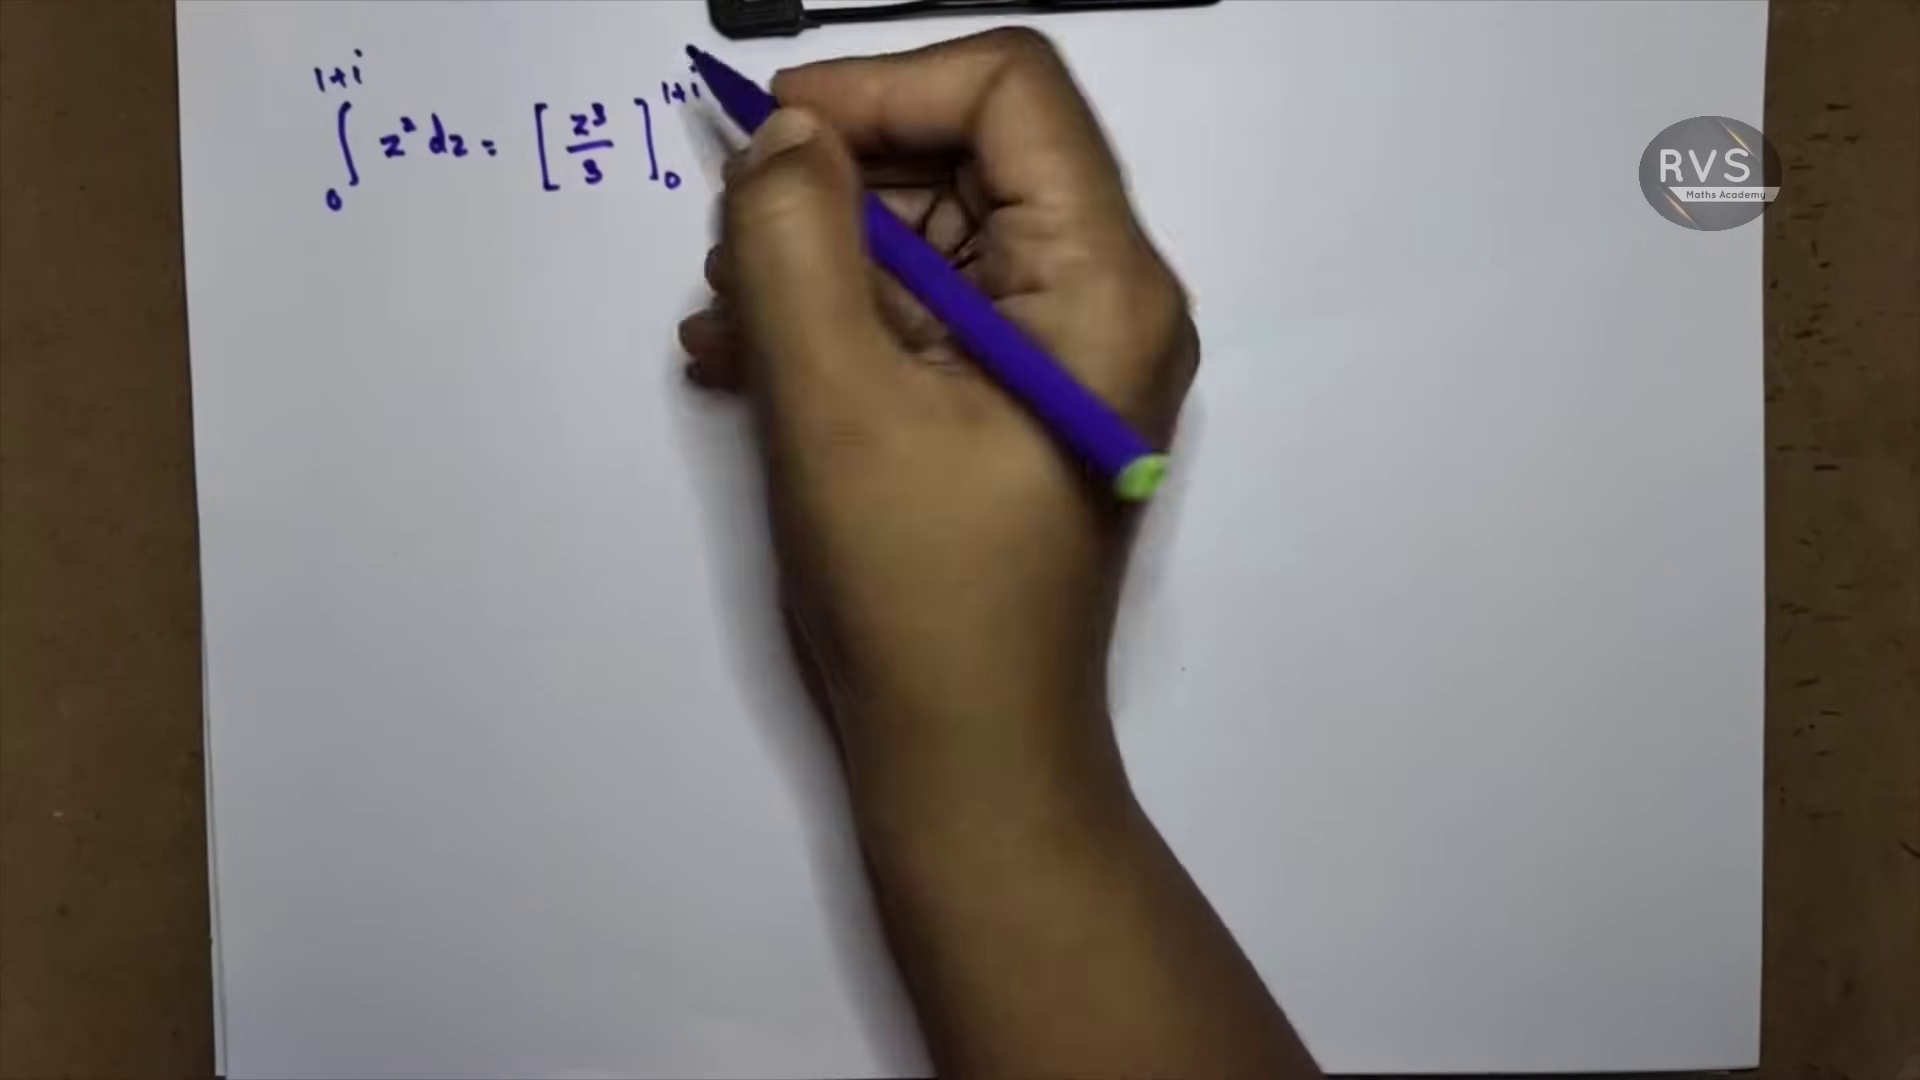 ∫₀¹⁺ⁱ z² dz = [z³/3]₀¹⁺ⁱ
RVS
Maths Academy